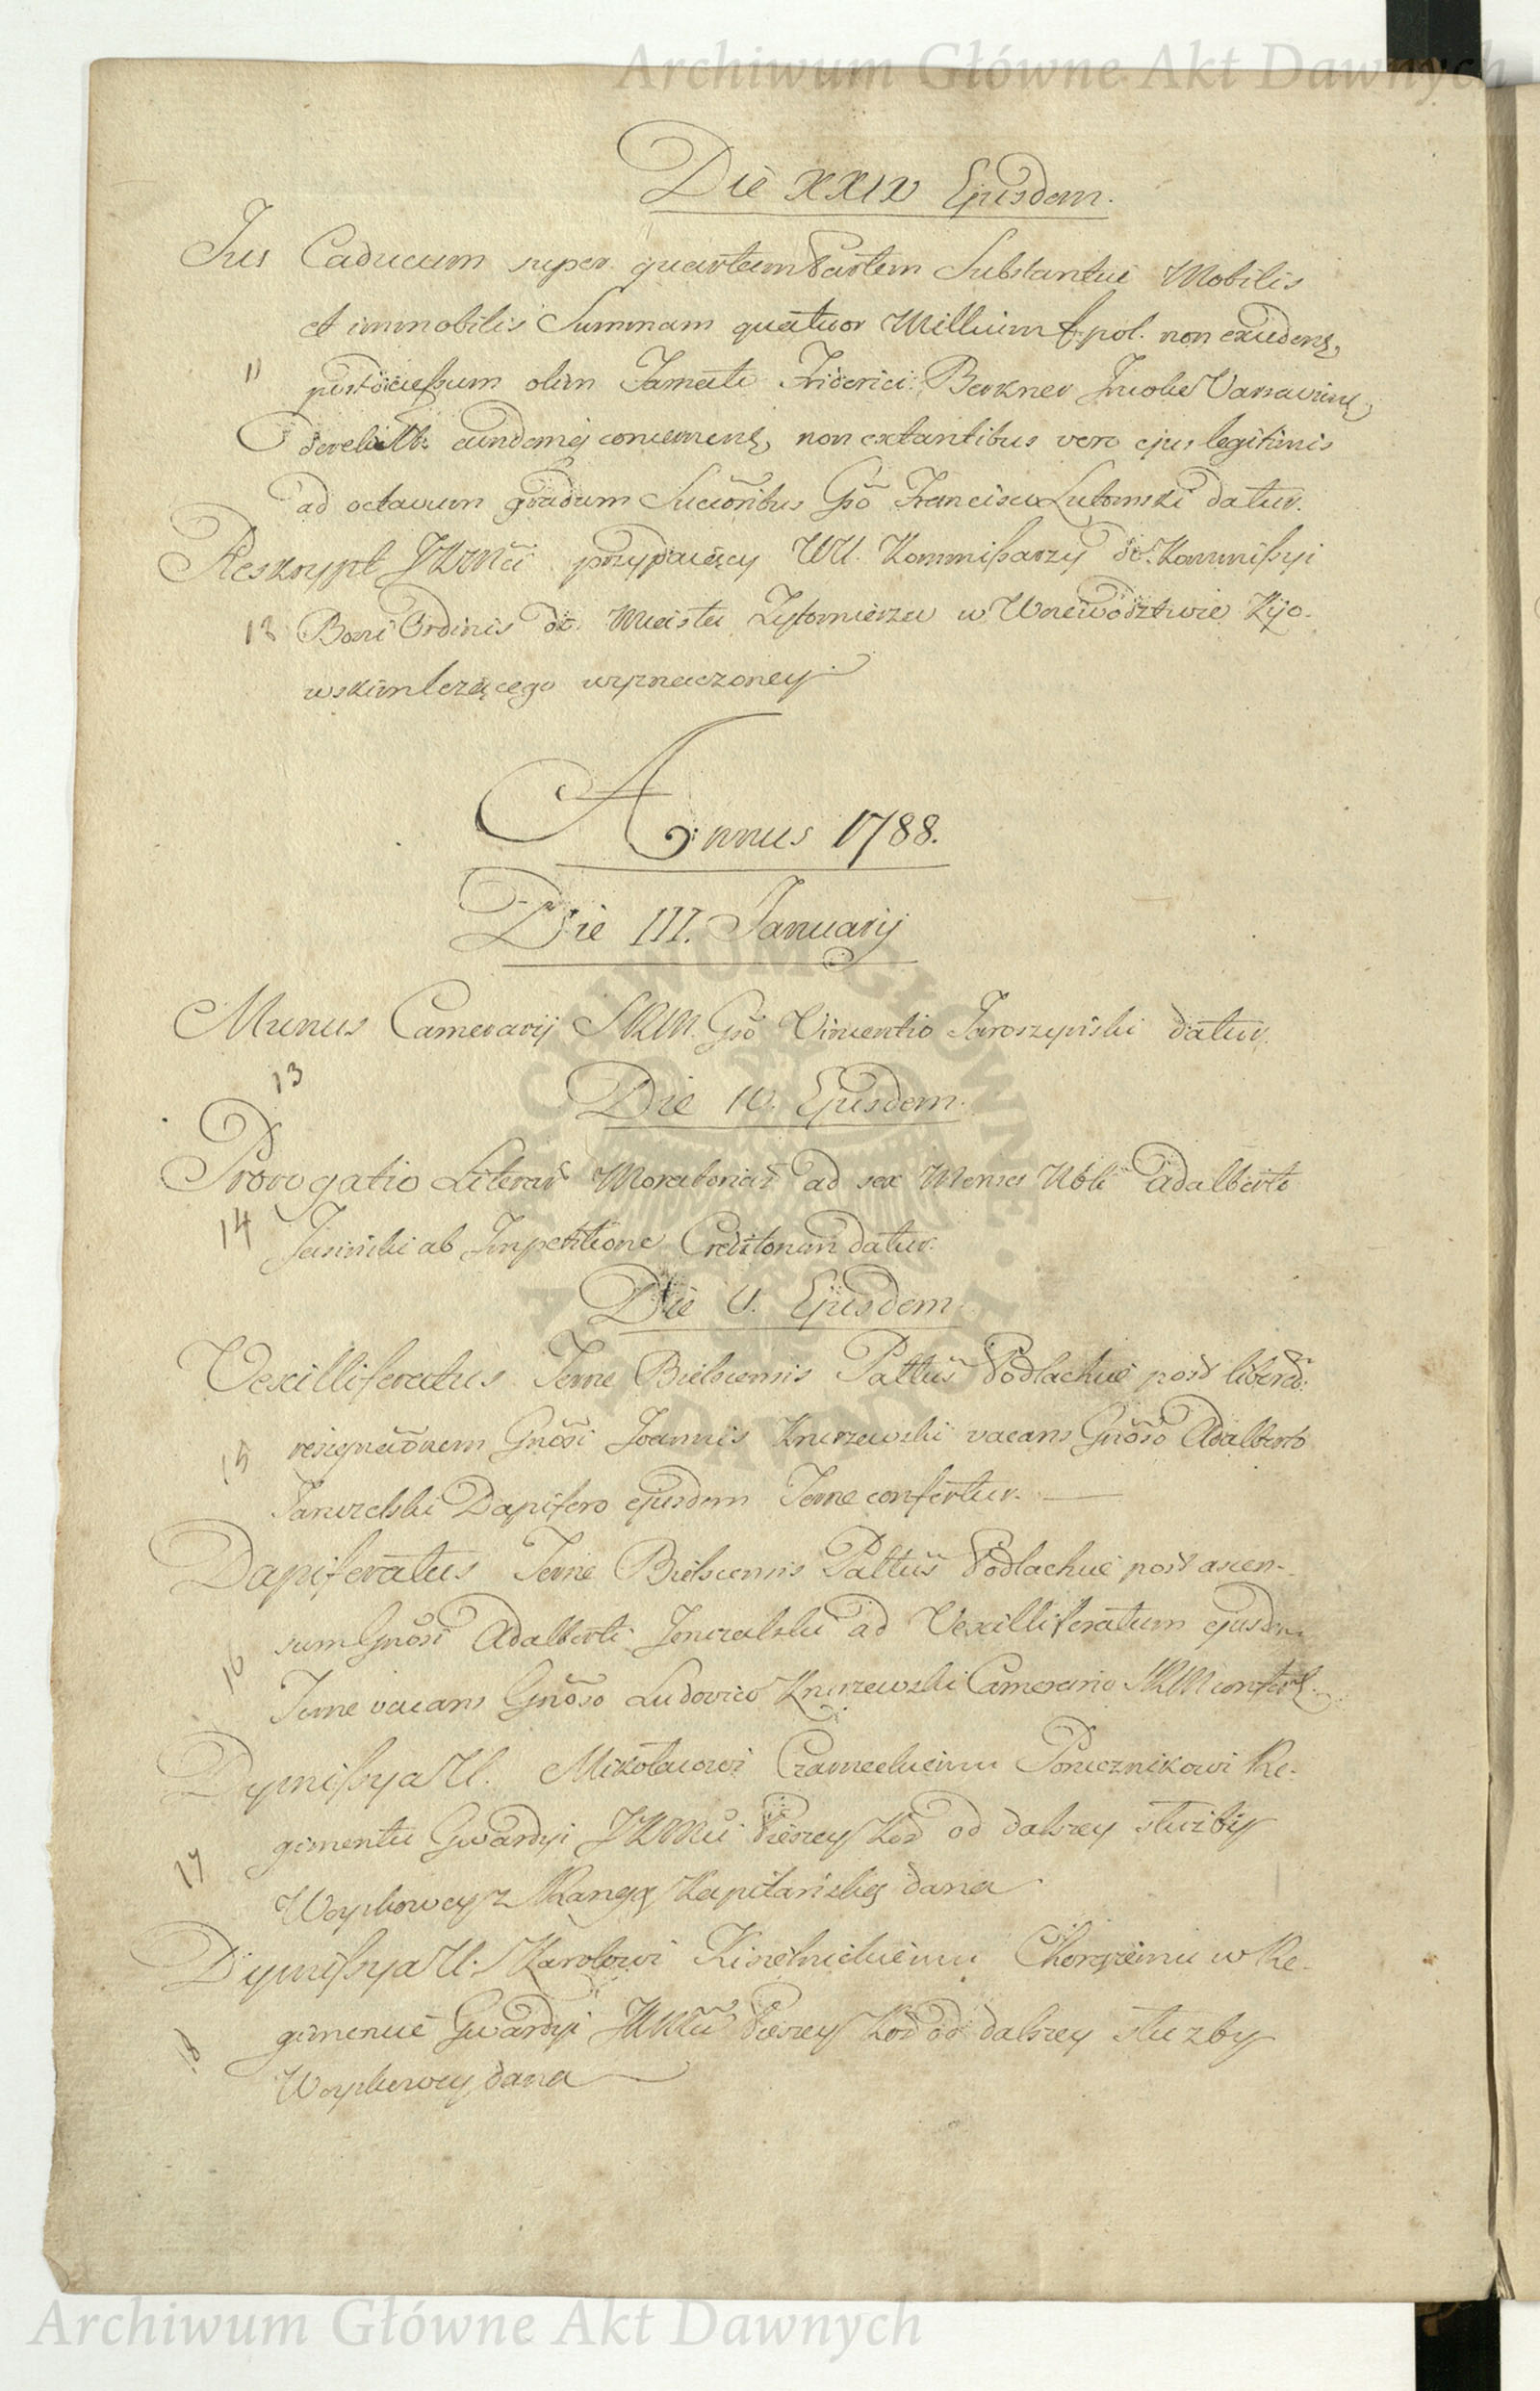 Archiwum Główne Akt Dawnych
Die XXIV Ejusdem.
Jus Caducum super quartam Partem Substantiæ Mobilis
et immobilis Summam quatuor Millium f. pol. non
11 olim Friderici Berkner Incolæ
non extantibus vero ejus legitimis
ad octavum gradum Gso Francisco Lutomski datur.
Reskrypt JKMci przydaiący WU. Kommissarzy do Kommissyi
12 Boni Ordinis do Miasta Zytomierza w Woiewodztwie Kijo-
wskim leżącego wyznaczoney
Annus 1788.
Die III. Januarij
Munus Camerarij SRM. Gso Vincentio Jaroszyński datur.
13
Die IV. Ejusdem.
Prorogatio Literar Moratoriar ad sex Menses Nbli Adalberto
14 Jasiński ab Impetitione Creditorum datur.
Die V. Ejusdem
Vexilliferatus Terræ Bielscensis Palttus Podlachiæ post liberam
15 resignaõnem Gnõsi Joannis vacans Gnõso Adalberto
Dapifero ejusdem Terræ confertur.
Dapiferatus Terræ Bielscensis Palttus Podlachiæ post ascen-
16 sum Gnõsi Adalberti ad Vexilliferatum ejusdem
Terræ vacans Gnõso Ludovico Camerario SRM
Dymissya U. Mikołaiowi Czarneckiemu Porucznikowi Re-
17 gimentu Gwardyi JKMci Pieszey Kor od dalszey służby
Woyskowey z Rangą Kapitańską dana
Dymissya U. Karolowi Kisielnickiemu Chorążemu w Re-
18 gimencie Gwardyi JKMci Pieszey Kor od dalszey służby
Woyskowey dana
Archiwum Główne Akt Dawnych